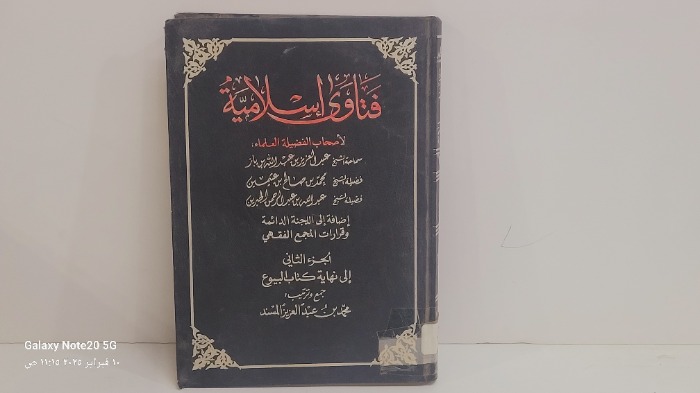 فتاوى إسلامية
لأصحاب الفضيلة العلماء:
سماحة الشيخ عبد العزيز بن عبد الله بن باز
فضيلة الشيخ محمد بن صالح بن عثيمين
فضيلة الشيخ عبد الله بن عبد الرحمن الجبرين
إضافة إلى اللجنة الدائمة
وقرارات المجمع الفقهي
الجزء الثاني
إلى نهاية كتاب البيوع
جمع وترتيب:
محمد بن عبد العزيز المسند
Galaxy Note20 5G
١٠ فبراير ٢٠٢٥ ١١:١٥ ص